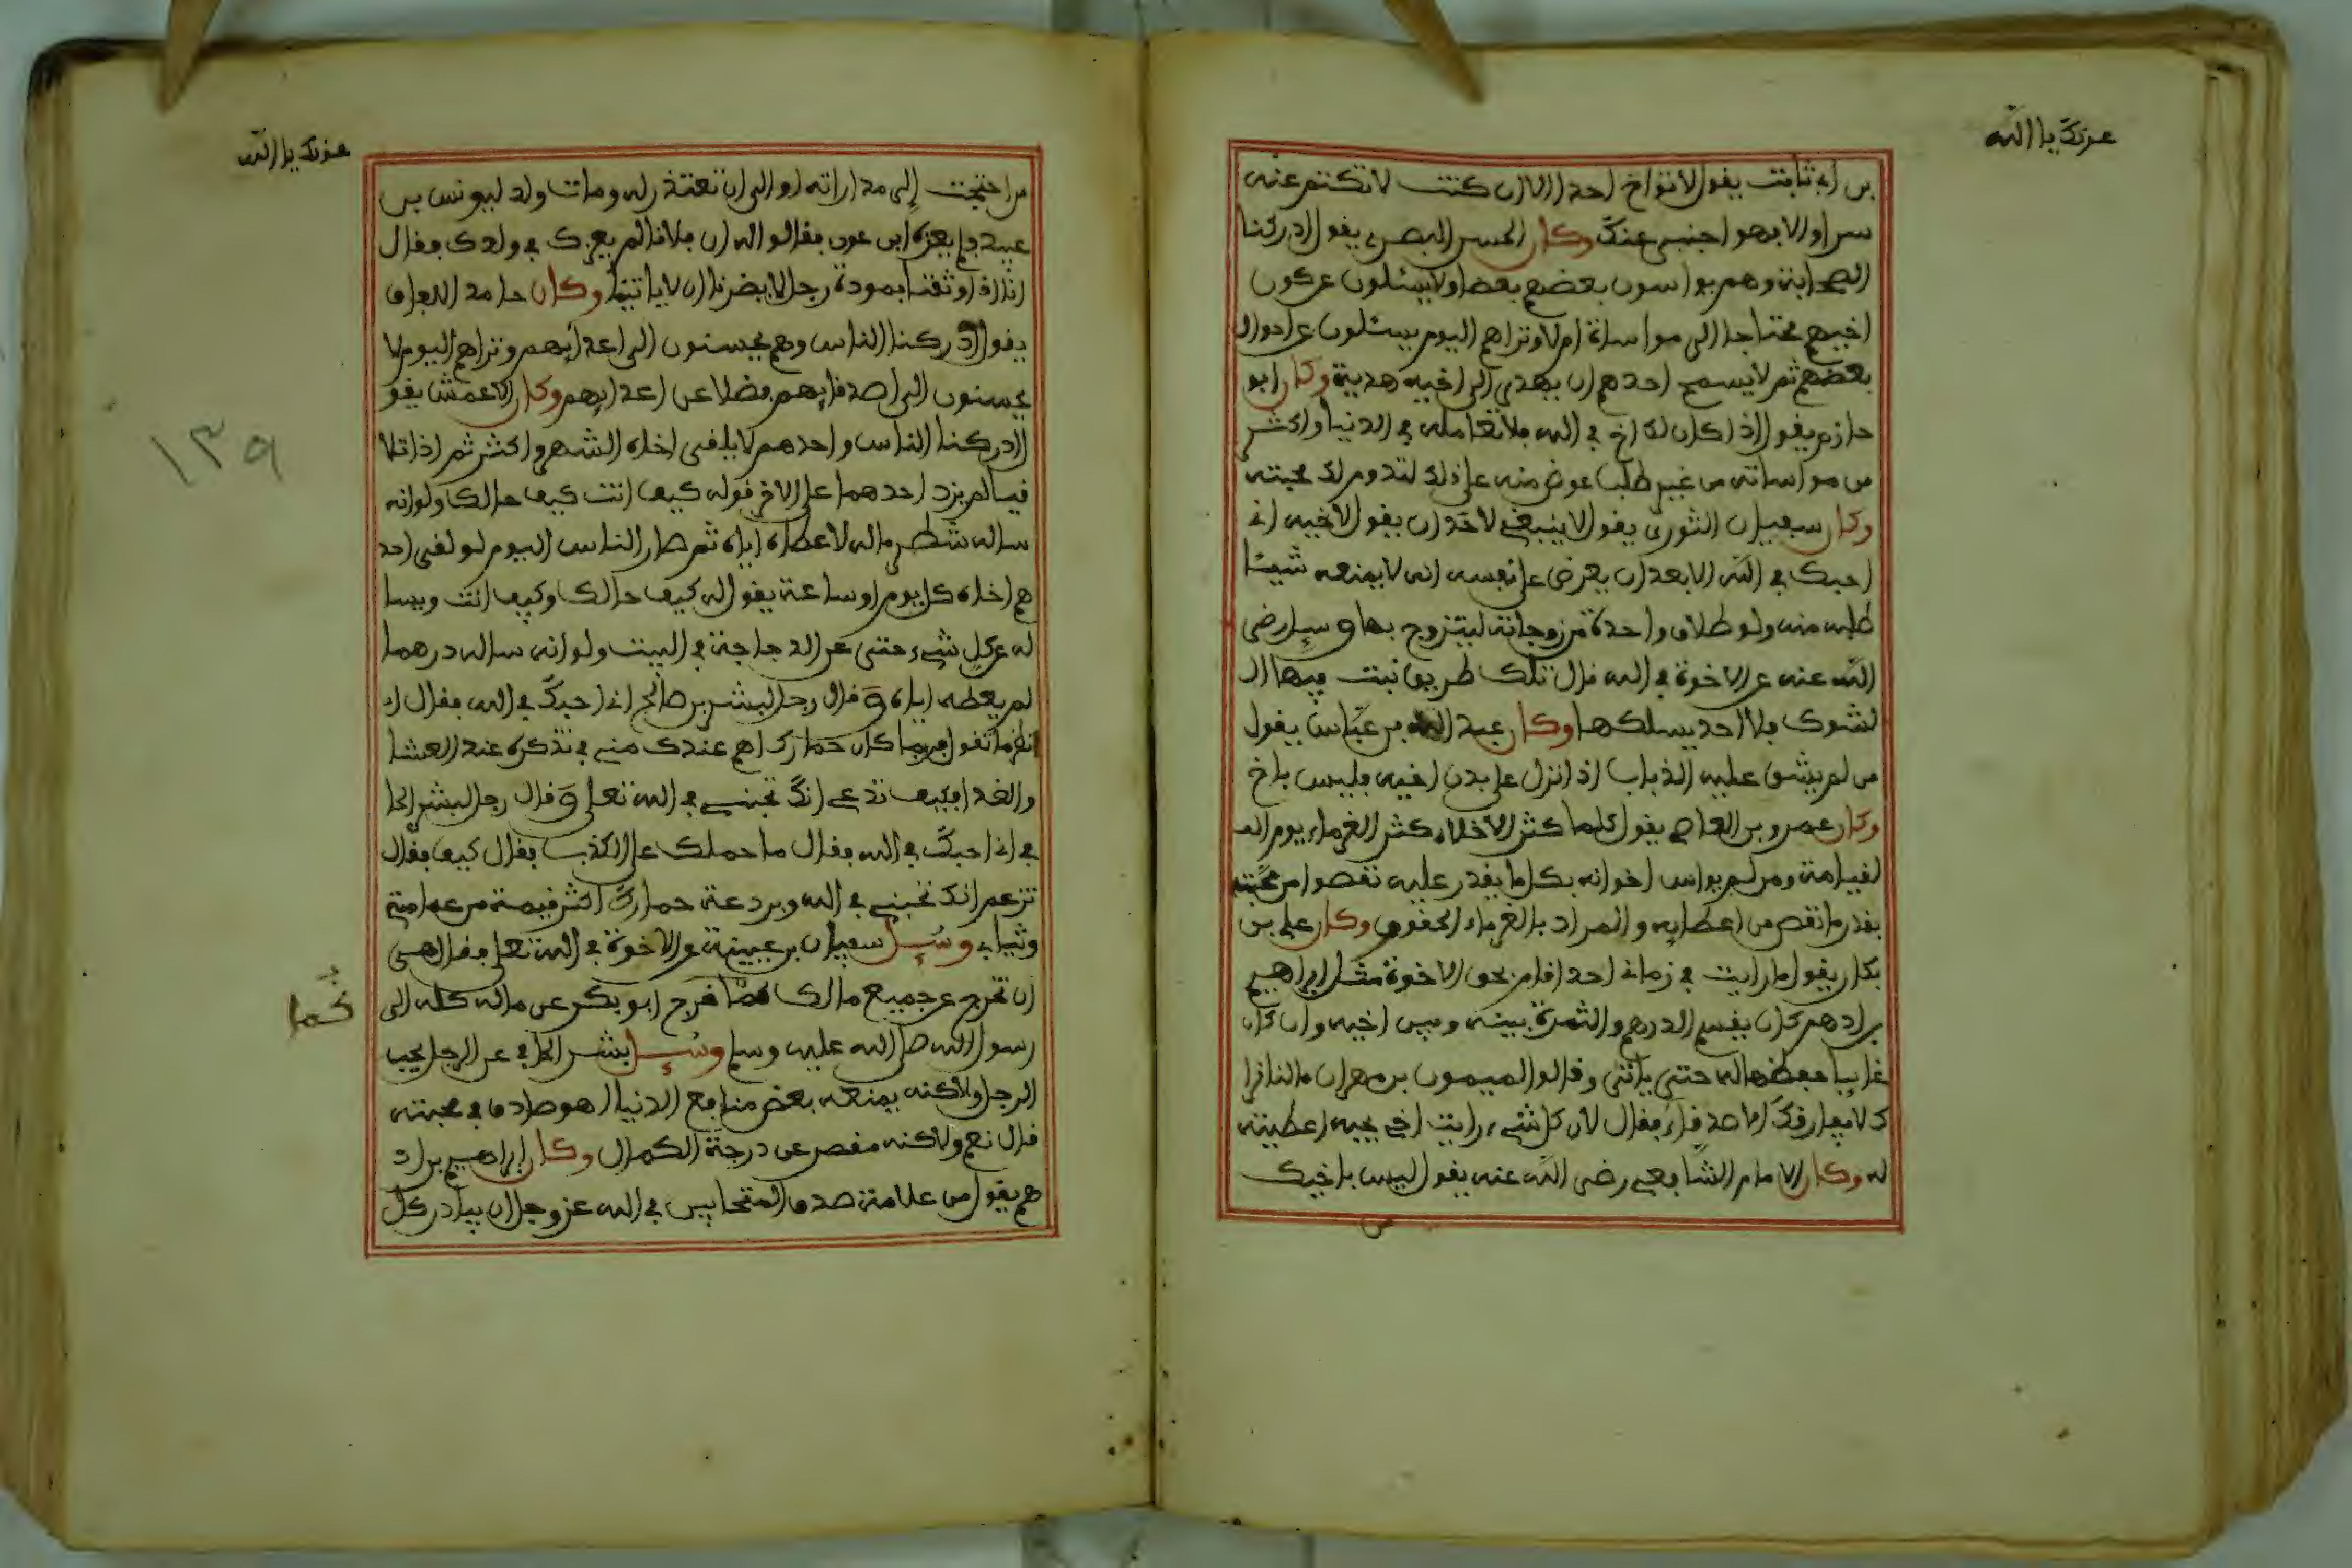 عونك يا الله
بن ابى ثابت يقول لا تواخ احدا الا ان كنت لا تكتم عنه
سرا والا فهو اجنبى عنك وكان الحسن البصرى يقول ادركنا
الصحابة وهم يواسون بعضهم بعضا ولا يسئلون عن كون
اخيهم محتاجا الى مواساة ام لا وتراهم اليوم يسئلون عن احوال
بعضهم ثم لا يسمح احدهم ان يهدى الى اخيه هدية وكان ابو
حازم يقول اذا كان لك اخ فى الله فلا تعامله فى الدنيا واكثر
من مواساته من غير طلب عوض منه على ذلك لتدوم لك محبته
وكان سفيان الثورى يقول لا ينبغى لاحد ان يقول لاخيه انى
احبك فى الله الا بعد ان يعرض على نفسه انه لا يمنعه شيئا
طلبه منه ولو طلاق واحدة من زوجاته ليتزوج بها وسئل رضى
الله عنه عن الاخوة فى الله فقال تلك طريق نبت فيها ال
لشوك فلا احد يسلكها وكان عبد الله بن عباس يقول
من لم يشق عليه الذباب اذا نزل على بدن اخيه فليس باخ
وكان عمرو بن العاص يقول كلما كثر الاخلاء كثر الغرماء يوم ال
لقيامة ومن لم يواس اخوانه بكل ما يقدر عليه نقصوا من محبته
بقدر ما نقص من اعطايه والمراد بالغرماء الحقوق وكان على بن
بكار يقول ما رايت فى زمانى احدا قام بحق الاخوة مثل ابراهيم
بن ادهم كان يقسم الدرهم والثمرة بينه وبين اخيه وان كان
غايبا حفظها له حتى ياتى وقالوا لميمون بن مهران ما لنا نرا
ك لا يفارقك اصدقاؤ فقال لان كل شىء رايت اخى يحبه اعطيته
له وكان الامام الشافعى رضى الله عنه يقول ليس باخيك
عونك يا الله
من احتجت الى مداراته او الى ان تعتذر له ومات ولد ليونس بن
عبيد فلم يعزه ابن عون فقالوا له ان فلانا لم يعزك فى ولدك فقال
انا اذا وثقنا بمودة رجل لا يضرنا ان لا ياتينا وكان حامد اللفاف
يقول ادركنا الناس وهم يحسنون الى اعدايهم وتراهم اليوم لا
يحسنون الى اصدقايهم فضلا عن اعدايهم وكان الاعمش يقو
ل ادركنا الناس واحدهم لا يلقى اخاه الشهر واكثر ثم اذا تلا
قيا لم يزد احدهما على الاخر قوله كيف انت كيف حالك ولو انه
ساله شطر ماله لاعطاه اياه ثم صار الناس اليوم لو لقى احد
هم اخاه كل يوم او ساعة يقول له كيف حالك وكيف انت ويسا
له عن كل شىء حتى عن الدجاجة فى البيت ولو انه ساله درهما
لم يعطه اياه وقال رجل لبشر بن صالح انى احبك فى الله فقال ا
نظر ما تقول فربما كان حمارك اهم عندك منى فى تذكره عند العشا
والغدا فكيف تدعى انك تحبنى فى الله تعلى وقال رجل لبشر الحا
فى انى احبك فى الله فقال ما حملك على الكذب فقال كيف فقال
تزعم انك تحبنى فى الله وبردعة حمارك اكثر قيمة من عمامتى
وثيابى وسئل سفيان بن عيينة عن الاخوة فى الله تعلى فقال هى
ان تخرج عن جميع مالك كما خرج ابو بكر عن ماله كله الى
رسول الله صلى الله عليه وسلم وسئل بشر الحافى عن الرجل يحب
الرجل ولاكنه يمنعه بعض منافع الدنيا اهو صادق فى محبته
قال نعم ولاكنه مقصر عن درجة الكمال وكان ابراهيم بن اد
هم يقول من علامة صدق المتحابين فى الله عز وجل ان يبادر كل
كما
١٣٩